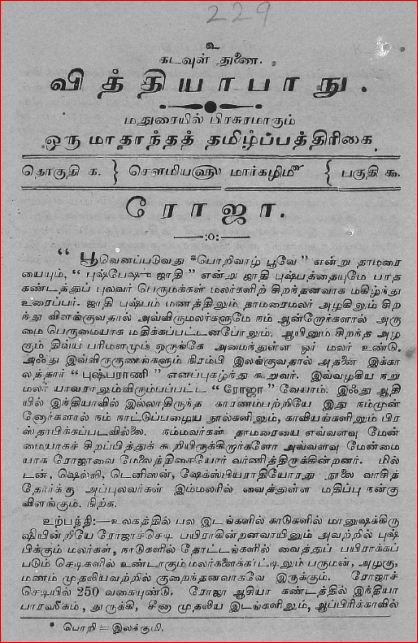 229
உ
கடவுள் துணை.
வித்தியாபாநு.
மதுரையில் பிரசுரமாகும்
ஒரு மாதாந்தத் தமிழ்ப்பத்திரிகை
தொகுதி க. } சௌமியஹு மார்கழிமீ { பகுதி ௯.
ரோஜா.
—:o:—
"பூவெனப்படுவது *பொறிவாழ் பூவே" என்று தாமரை
யையும், "புஷ்பேஷு ஜாதி" என்று ஜாதி புஷ்பத்தையுமே பாத
கண்டத்துப் புலவர் பெருமக்கள் மலர்களிற் சிறந்தனவாக மகிழ்ந்து
உரைப்பர். ஜாதி புஷ்பம் மணத்திலும் தாமரைமலர் அழகிலும் சிறந்
து விளங்குவதால் அவ்விருமலர்களுமே நம் ஆன்றோர்களால் அரு
மை பெருமையாக மதிக்கப்பட்டனபோலும். ஆயினும் சிறந்த அழ
கும் திவ்ய பரிமளமும் ஒருங்கே அமைந்துள்ள ஓர் மலர் உண்டு.
அஃது இவ்விருகுணங்களும் நிரம்பி இலங்குவதால் அதனை இக்கா
லத்தார் "புஷ்பராணி" எனப்புகழ்ந்து கூறுவர். இவ்வழகிய நறு
மலர் யாவராலும்விரும்பப்பட்ட "ரோஜா" வேயாம். இஃது ஆதி
யில் இந்தியாவில் இல்லாதிருந்த காரணம்பற்றியே இது நம்முன்
னோர்களால் நம் நாட்டுப்பழைய நூல்களிலும், காவியங்களிலும் பிர
ஸ்தாபிக்கப்படவில்லை. நம்மவர்கள் தாமரையை எவ்வளவு மேன்
மையாகச் சிறப்பித்துக் கூறியிருக்கிறார்களோ அவ்வளவு மேன்மை
யாக ரோஜாவை மேலைத்திசையோர் வர்ணித்திருக்கின்றனர். மில்
டன், ஷெல்லி, டெனிஸன், ஷேக்ஸ்பியராதியோரது நூலை வாசித்
தோர்க்கு அப்புலவர்கள் இம்மலரில் வைத்துள்ள மதிப்பு நன்கு
விளங்கும். நிற்க.
உற்பத்தி:—உலகத்தில் பல இடங்களில் காடுகளில் மானுஷக்கிரு
ஷியின்றியே ரோஜாச்செடி பயிராகின்றனவாயினும் அவற்றில் புஷ்
பிக்கும் மலர்கள், நாடுகளில் தோட்டங்களில் வைத்துப் பயிராக்கப்
படும் செடிகளில் உண்டாகும்மலர்களைக்காட்டிலும் பருமன், அழகு,
மணம் முதலியவற்றில் குறைந்தனவாகவே இருக்கும். ரோஜாச்
செடியில் 250 வகையுண்டு. ரோஜா ஆசியா கண்டத்தில் இந்தியா
பாரஸீகம், துருக்கி, சீனா முதலிய இடங்களிலும், ஆப்பிரிக்காவில்
* பொறி = இலக்குமி.